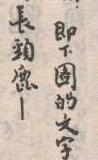 即下圖的文字
長頸鹿—